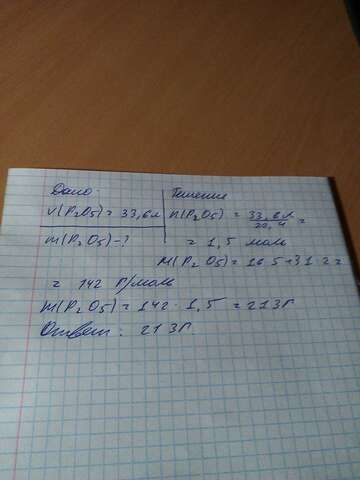 Дано:
V(P₂O₅) = 33,6л
m(P₂O₅)-?
Решение
n(P₂O₅) = 33,6л / 22,4 =
= 1,5 моль
M(P₂O₅) = 16·5+31·2=
= 142 г/моль
m(P₂O₅) = 142 · 1,5 = 213г
Ответ: 213г.